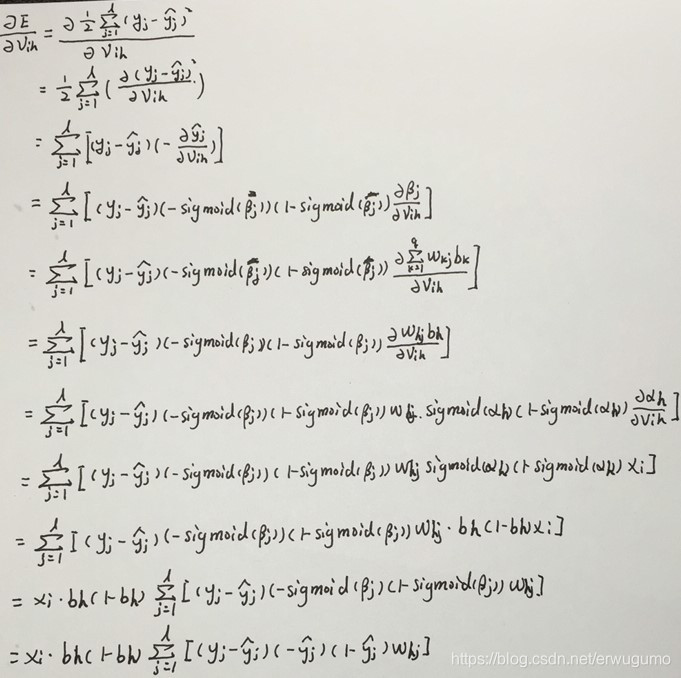 ∂E/∂Vih = ∂ 1/2 ∑_{j=1}^{l} (yj-ŷj)² / ∂Vih
= 1/2 ∑_{j=1}^{l} ( ∂(yj-ŷj)² / ∂Vih )
= ∑_{j=1}^{l} [(yj-ŷj)(- ∂ŷj/∂Vih)]
= ∑_{j=1}^{l} [(yj-ŷj)(-sigmoid(βj))(1-sigmoid(βj)) ∂βj/∂Vih]
= ∑_{j=1}^{l} [(yj-ŷj)(-sigmoid(βj))(1-sigmoid(βj)) ∂∑_{k=1}^{q} wkj bk / ∂Vih]
= ∑_{j=1}^{l} [(yj-ŷj)(-sigmoid(βj))(1-sigmoid(βj)) ∂whj bh / ∂Vih]
= ∑_{j=1}^{l} [(yj-ŷj)(-sigmoid(βj))(1-sigmoid(βj)) whj · sigmoid(αh)(1-sigmoid(αh)) ∂αh/∂Vih]
= ∑_{j=1}^{l} [(yj-ŷj)(-sigmoid(βj))(1-sigmoid(βj)) whj sigmoid(αh)(1-sigmoid(αh)) xi]
= ∑_{j=1}^{l} [(yj-ŷj)(-sigmoid(βj))(1-sigmoid(βj)) whj · bh(1-bh)xi]
= xi · bh(1-bh) ∑_{j=1}^{l} [(yj-ŷj)(-sigmoid(βj)(1-sigmoid(βj)) whj]
= xi · bh(1-bh) ∑_{j=1}^{l} [(yj-ŷj)(-ŷj)(1-ŷj) whj]
https://blog.csdn.net/erwugumo